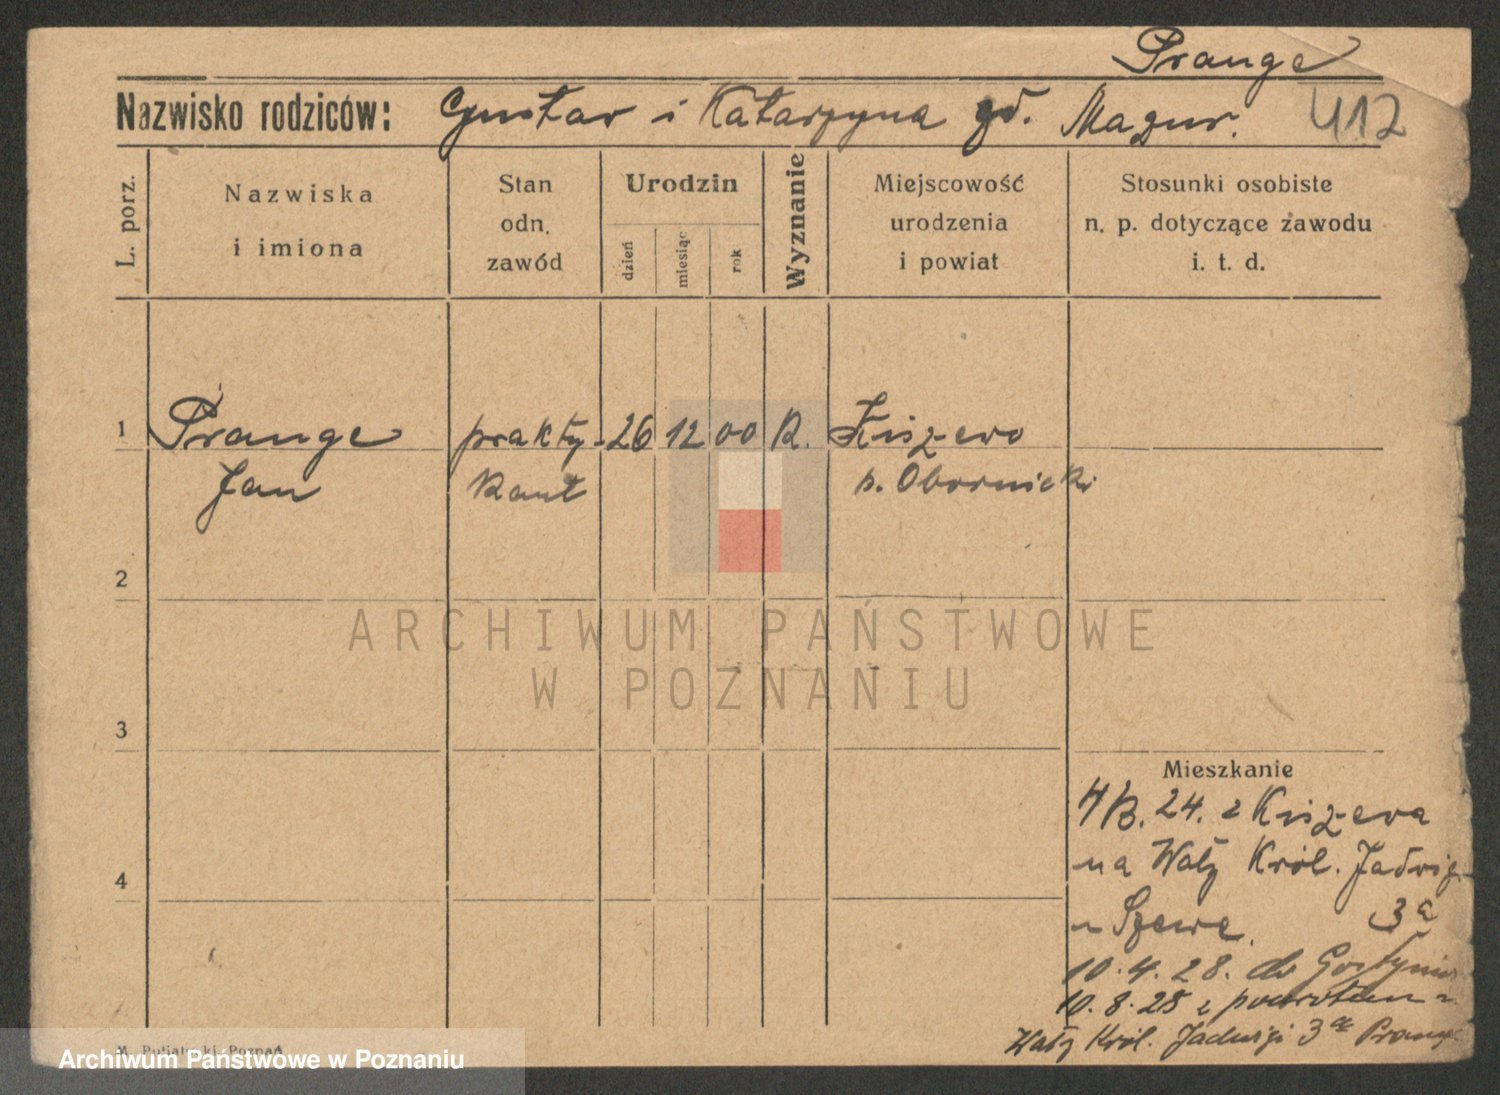 Prange
Nazwisko rodziców: Gustav i Katarzyna gd. Mazur. 412
L. porz.
Nazwiska
i imiona
Stan
odn.
zawód
Urodzin
dzień
miesiąc
rok
Wyznanie
Miejscowość
urodzenia
i powiat
Stosunki osobiste
n. p. dotyczące zawodu
i. t. d.
1 Prange prakty- 26 12 00 R. Kiszewo
Jan kant p. Obornicki
2
3
Mieszkanie
24. z Kiszewa
na Wały Król. Jadwigi
4
3a
10.4.28. do
10.8.28 z powrotem
Wały Król. Jadwigi 3a Prange
M. Putiatycki, Poznań
ARCHIWUM PAŃSTWOWE
W POZNANIU
Archiwum Państwowe w Poznaniu